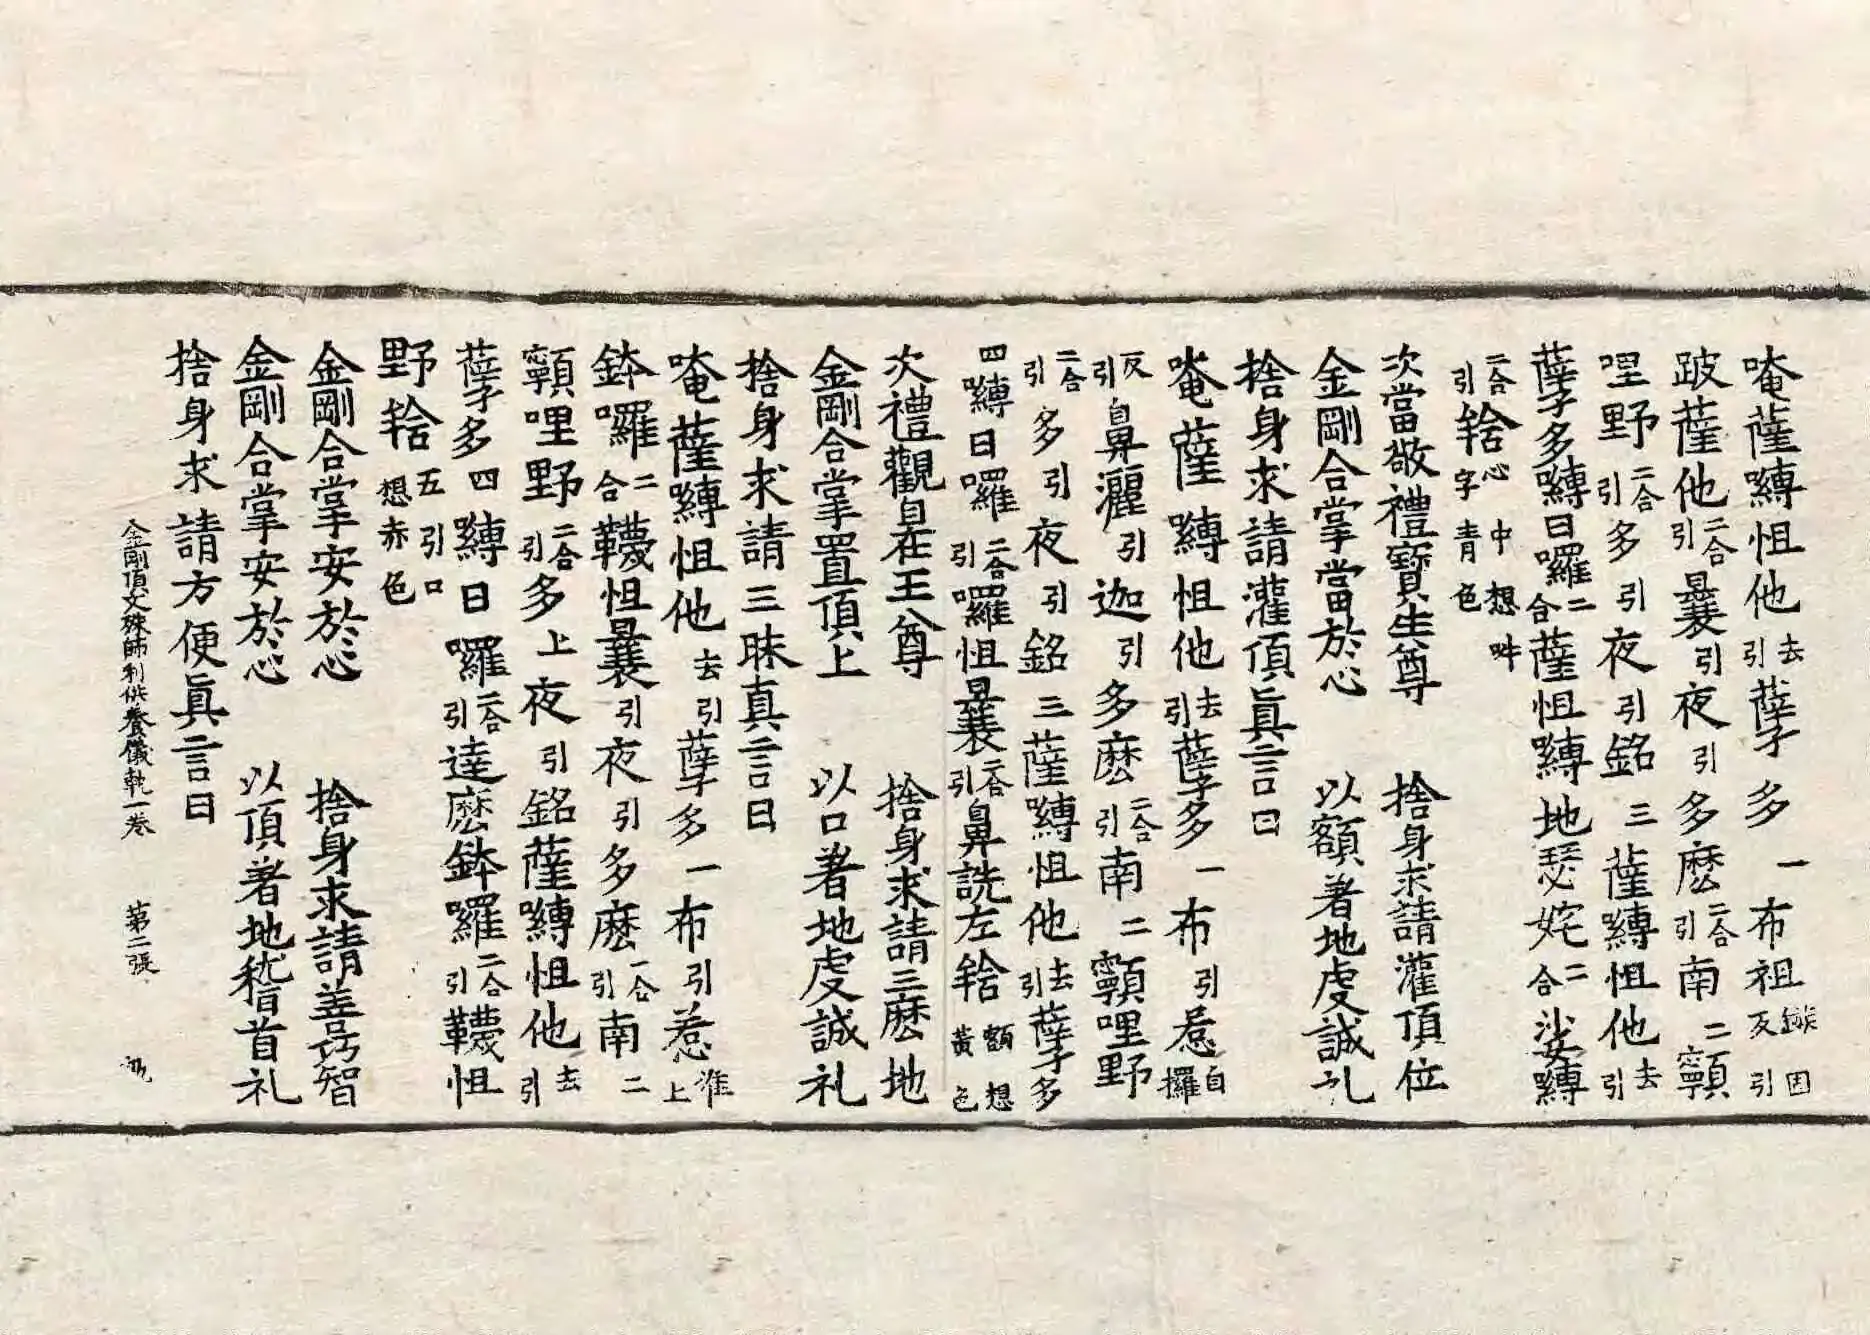 唵薩嚩怛他去引孽多一布祖鏃因反引
跛薩他二合引曩引夜引多麼二合引南二顐
哩野二合引多引夜引銘三薩嚩怛他去引
孽多嚩日囉二合薩怛嚩地瑟姹二合娑嚩
二合引𤚥心中想吽字青色
次當敬禮寶生尊　捨身求請灌頂位
金剛合掌當於心　以額著地虔誠礼
捨身求請灌頂真言曰
唵薩嚩怛他去引孽多一布引惹自攞
反引鼻灑引迦引多麼二合引南二顐哩野
二合引多引夜引銘三薩嚩怛他去引孽多
四嚩日囉二合引囉怛曩二合引鼻詵左𤚥額想黃色
次禮觀自在王尊　捨身求請三麼地
金剛合掌置頂上　以口著地虔誠礼
捨身求請三昧真言曰
唵薩嚩怛他去引孽多一布引惹准上
鉢囉二合韈怛曩引夜引多麼二合引南二
顐哩野二合引多上夜引銘薩嚩怛他去引
孽多四嚩日囉二合引達麼鉢囉二合引韈怛
野𤚥五引口想赤色
金剛合掌安於心　捨身求請善巧智
金剛合掌安於心　以頂著地稽首礼
捨身求請方便真言曰
金剛頂文殊師利供養儀軌一卷　第二張